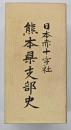 日本赤十字社
熊本県支部史